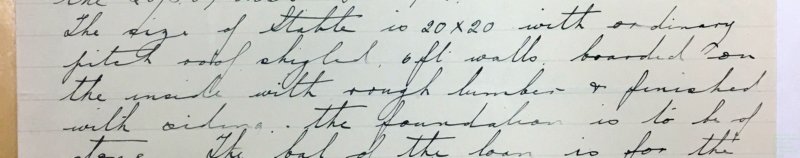 The size of Stable is 20x20 with ordinary
pitch roof shigled. 6ft walls. boarded on
the inside with rough lumber & finished
with siding. the foundation is to be of
The bal of the loan is for the